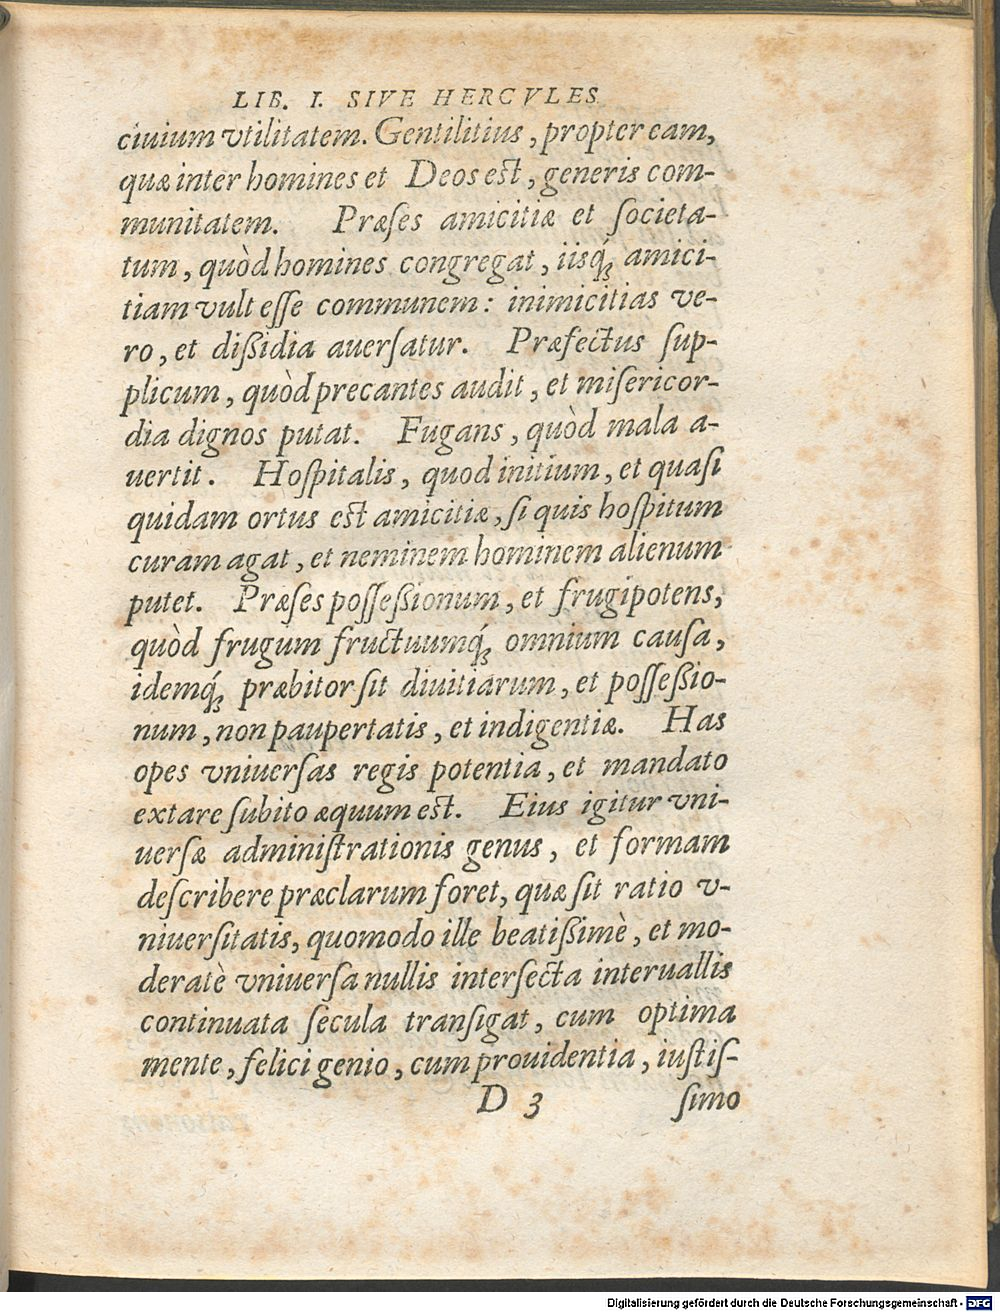 LIB. I. SIVE HERCVLES
ciuium vtilitatem. Gentilitius, propter eam,
quæ inter homines et Deos est, generis com-
munitatem. Præſes amicitiæ et ſocieta-
tum, quòd homines congregat, iisq́; amici-
tiam vult eſſe communem: inimicitias ve-
ro, et dißidia auerſatur. Præfectus ſup-
plicum, quòd precantes audit, et miſericor-
dia dignos putat. Fugans, quòd mala a-
uertit. Hoſpitalis, quod initium, et quaſi
quidam ortus est amicitiæ, ſi quis hoſpitum
curam agat, et neminem hominem alienum
putet. Præſes poſſeßionum, et frugipotens,
quòd frugum fructuumq́; omnium cauſa,
idemq́; præbitor ſit diuitiarum, et poſſeßio-
num, non paupertatis, et indigentiæ. Has
opes vniuerſas regis potentia, et mandato
extare ſubito æquum est. Eius igitur vni-
uerſæ adminiſtrationis genus, et formam
deſcribere præclarum foret, quæ ſit ratio v-
niuerſitatis, quomodo ille beatißimè, et mo-
deratè vniuerſa nullis interſecta interuallis
continuata ſecula tranſigat, cum optima
mente, felici genio, cum prouidentia, iuſtiſ-
D 3 ſimo
Digitalisierung gefördert durch die Deutsche Forschungsgemeinschaft - DFG